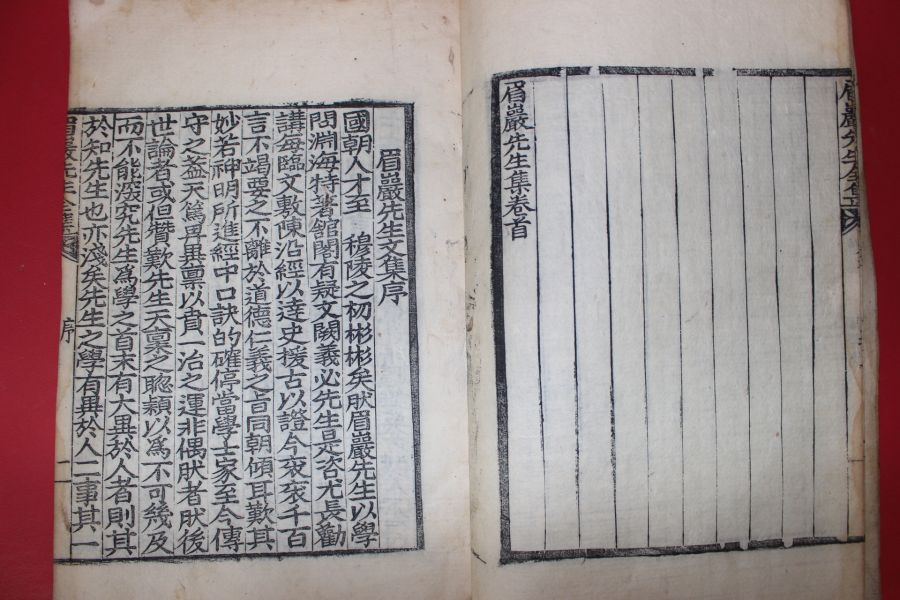 眉巖先生集卷首
眉巖先生文集序
國朝人才至 穆陵之初彬彬矣肰眉巖先生以學
問淵海特著館閣有疑文闕義必先生是咨尤長勸
講每臨文敷陳沿經以逹史援古以證今袞袞千百
言不竭要之不離於道德仁義之旨同朝傾耳歎其
妙若神明所進經中口訣的確停當學士家至今傳
守之盖天爲畀異禀以賁一治之運非偶肰者肰後
世論者或但贊歎先生天禀之聡穎以爲不可幾及
而不能深究先生爲學之首末有大異於人者則其
於知先生也亦淺矣先生之學有異於人二事其一
序
一